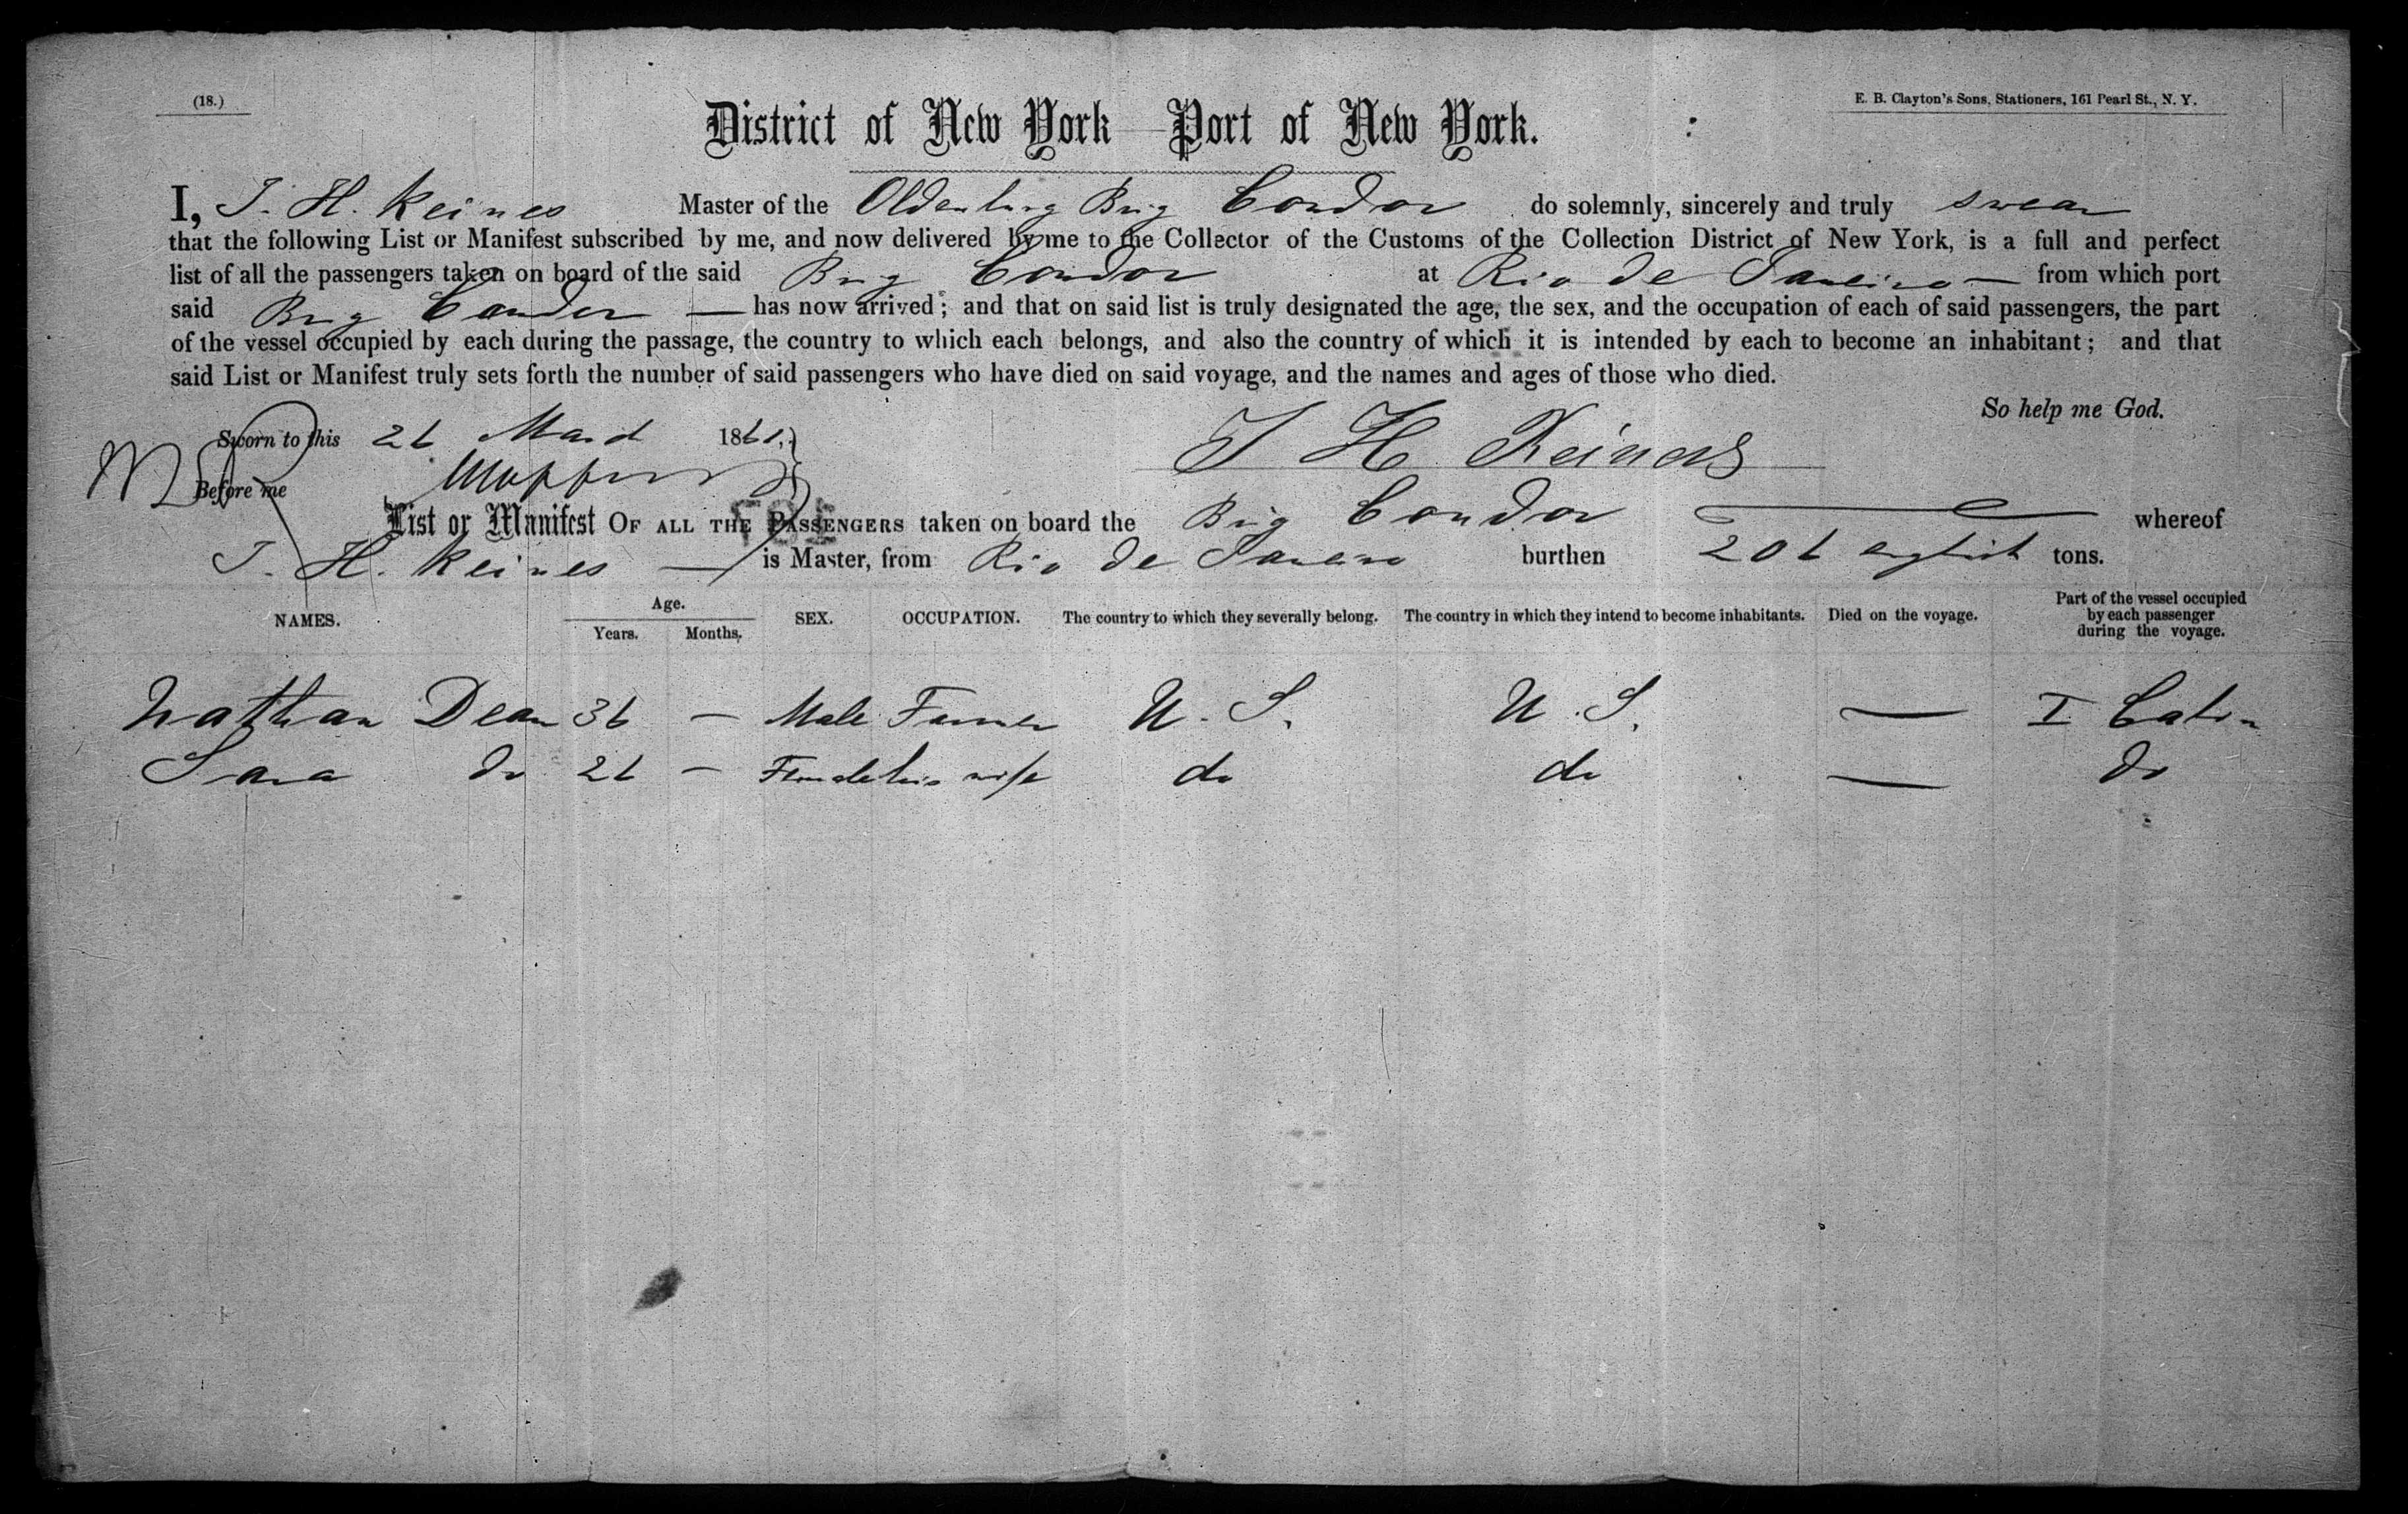 (18.)
E. B. Clayton's Sons, Stationers, 161 Pearl St., N. Y.
District of New York—Port of New York.
I, J. H. Reines Master of the Oldenburg Brig Condor do solemnly, sincerely and truly swear
that the following List or Manifest subscribed by me, and now delivered by me to the Collector of the Customs of the Collection District of New York, is a full and perfect
list of all the passengers taken on board of the said Brig Condor at Rio de Janeiro — from which port
said Brig Condor — has now arrived; and that on said list is truly designated the age, the sex, and the occupation of each of said passengers, the part
of the vessel occupied by each during the passage, the country to which each belongs, and also the country of which it is intended by each to become an inhabitant; and that
said List or Manifest truly sets forth the number of said passengers who have died on said voyage, and the names and ages of those who died.
So help me God.
Sworn to this 26 March 1861.
J H Reiners
Before me
List or Manifest OF ALL THE PASSENGERS taken on board the Brig Condor whereof
J. H. Reines — is Master, from Rio de Janeiro burthen 206 english tons.
NAMES. Age. Years. Months. SEX. OCCUPATION. The country to which they severally belong. The country in which they intend to become inhabitants. Died on the voyage. Part of the vessel occupied by each passenger during the voyage.
Nathan Dean 36 — Male Farmer U. S. U. S. — I Cabin
Sara do 26 — Female his wife do do — do